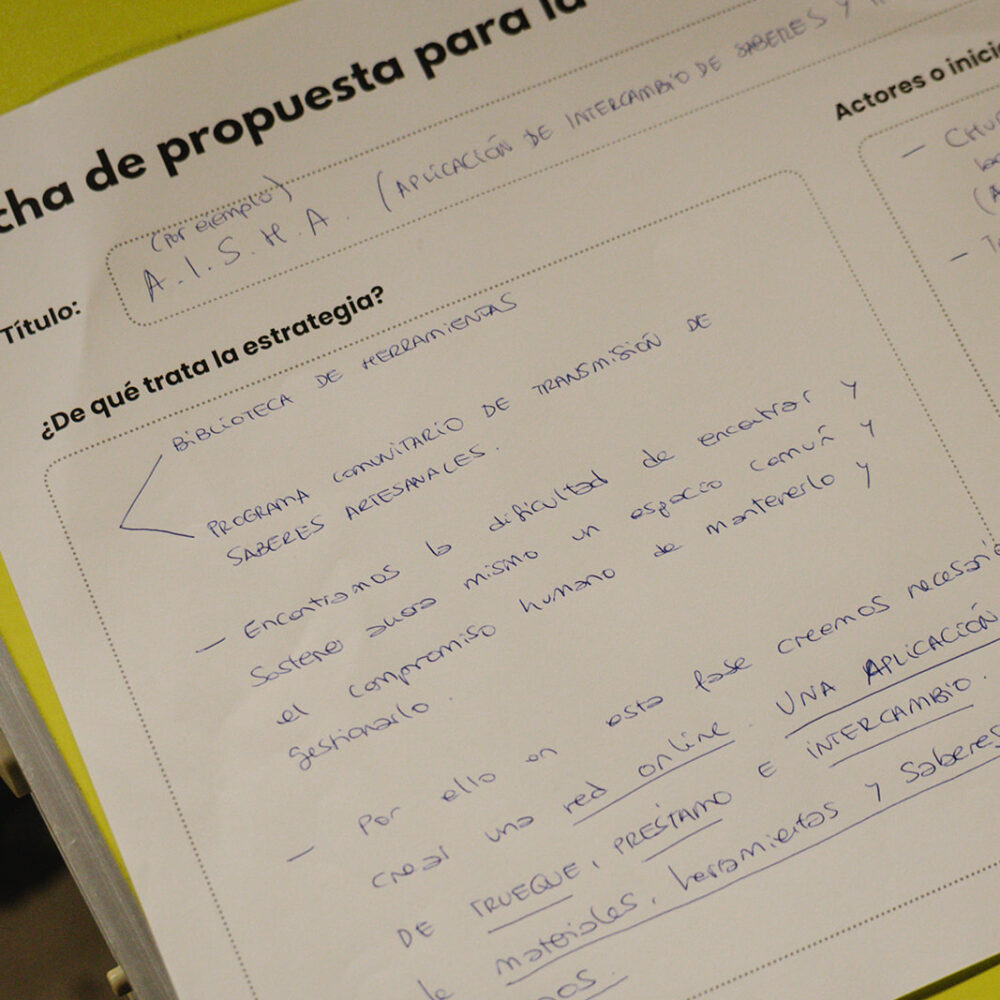 cha de propuesta para la
Título:
(por ejemplo)
A.I.S.H.A. (APLICACIÓN DE INTERCAMBIO DE SABERES Y
¿De qué trata la estrategia?
BIBLIOTECA DE HERRAMIENTAS
PROGRAMA COMUNITARIO DE TRANSMISIÓN DE
SABERES ARTESANALES.
— Encontramos la dificultad de encontrar y
sostener ahora mismo un espacio común y
el compromiso humano de mantenerlo y
gestionarlo.
— Por ello en esta fase creemos necesario
crear una red online. UNA APLICACIÓN
DE TRUEQUE, PRÉSTAMO E INTERCAMBIO.
de materiales, herramientas y saberes
Actores o inici